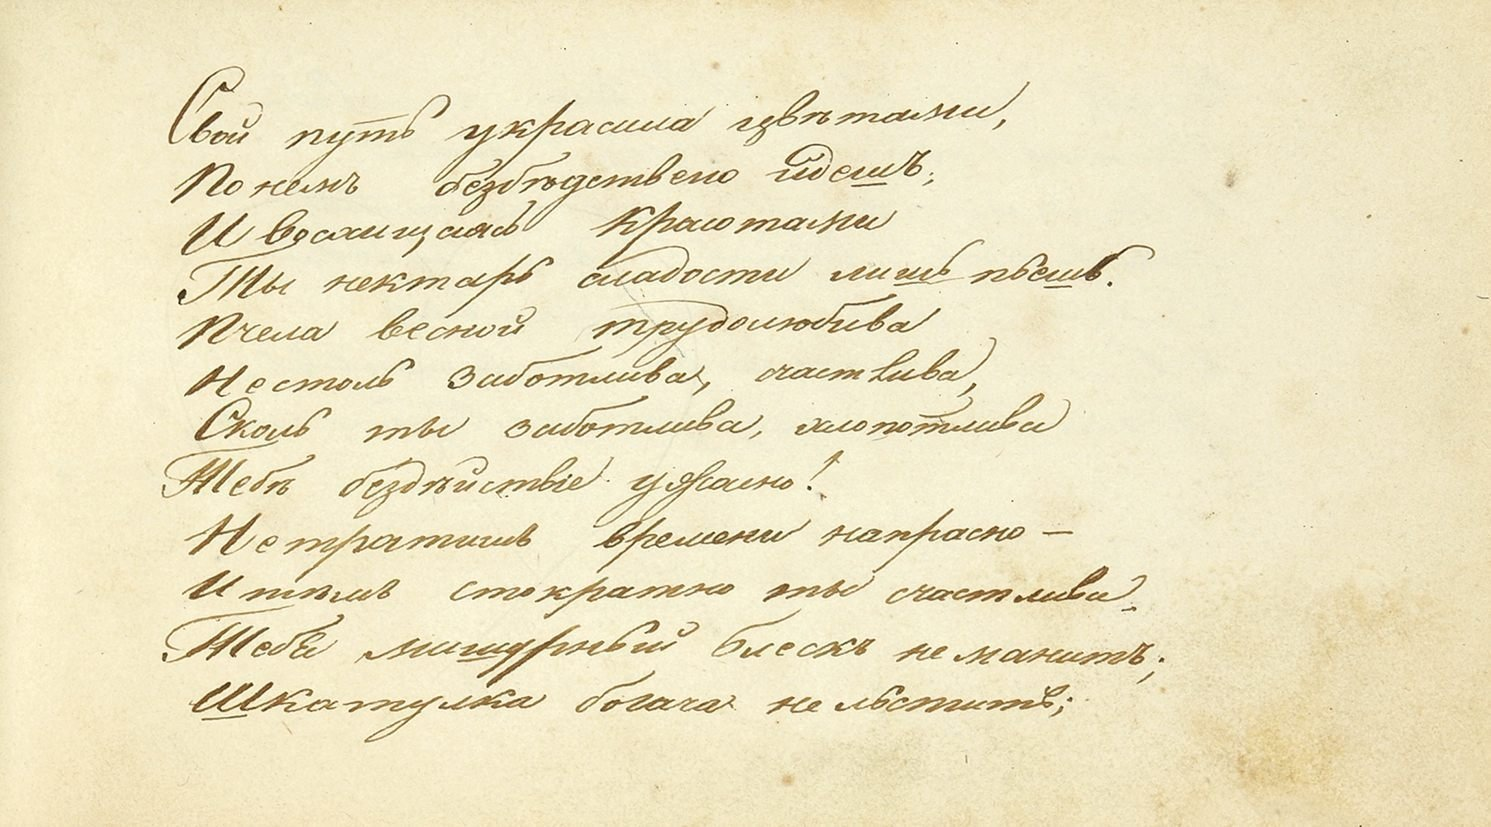 Свой путь украсила цвѣтами,
По немъ безбѣдствено идешъ;
И восхищаясь красотами
Ты нектарь сладости лишь пьешь.
Пчела весной трудолюбива
Не столь заботлива, счастлива,
Сколь ты заботлива, хлопотлива
Тебѣ бездѣйствіе ужасно!
Не тратишь времени напрасно —
И тѣмъ стократно ты счастлива.
Тебя мишурный блескъ не манитъ;
Шкатулка богача не льститъ;